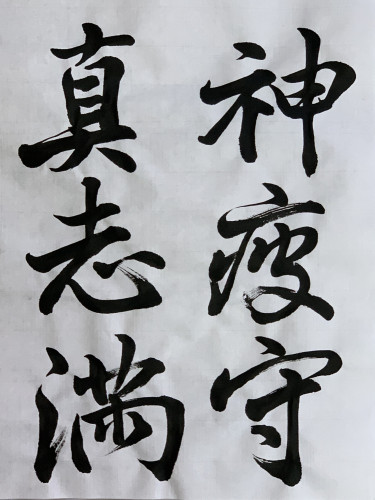 神疲守
真志満